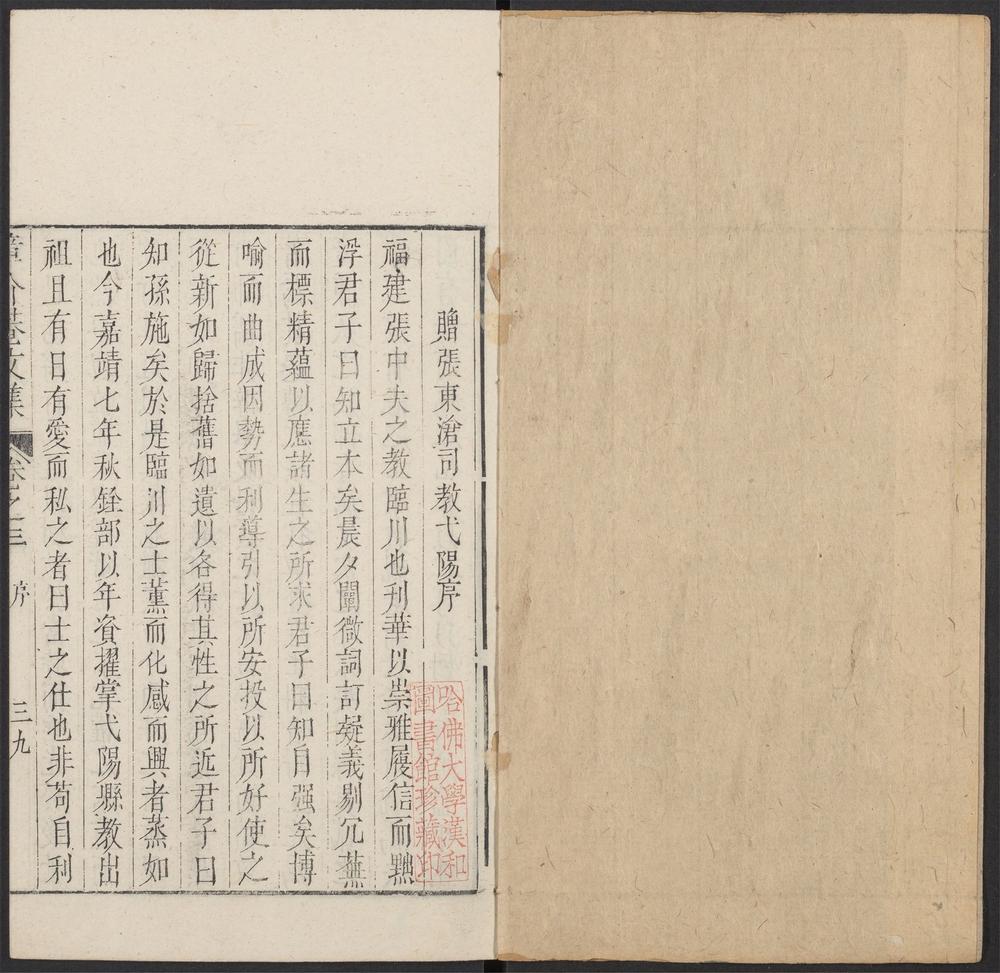 贈張東滄司教弋陽序
福建張中夫之教臨川也刋華以崇雅履信而黜
浮君子曰知立本矣晨夕闡微詞訂疑義剔冗蕪
而標精蘊以應諸生之所求君子曰知自强矣博
喻而曲成因勢而利導引以所安投以所好使之
從新如歸捨舊如遺以各得其性之所近君子曰
知孫施矣於是臨川之士薰而化感而興者蒸如
也今嘉靖七年秋銓部以年資擢掌弋陽縣教出
祖且有日有愛而私之者曰士之仕也非苟自利
章介菴文集 卷之三 序 三九
哈佛大學漢和
圖書館珍藏印